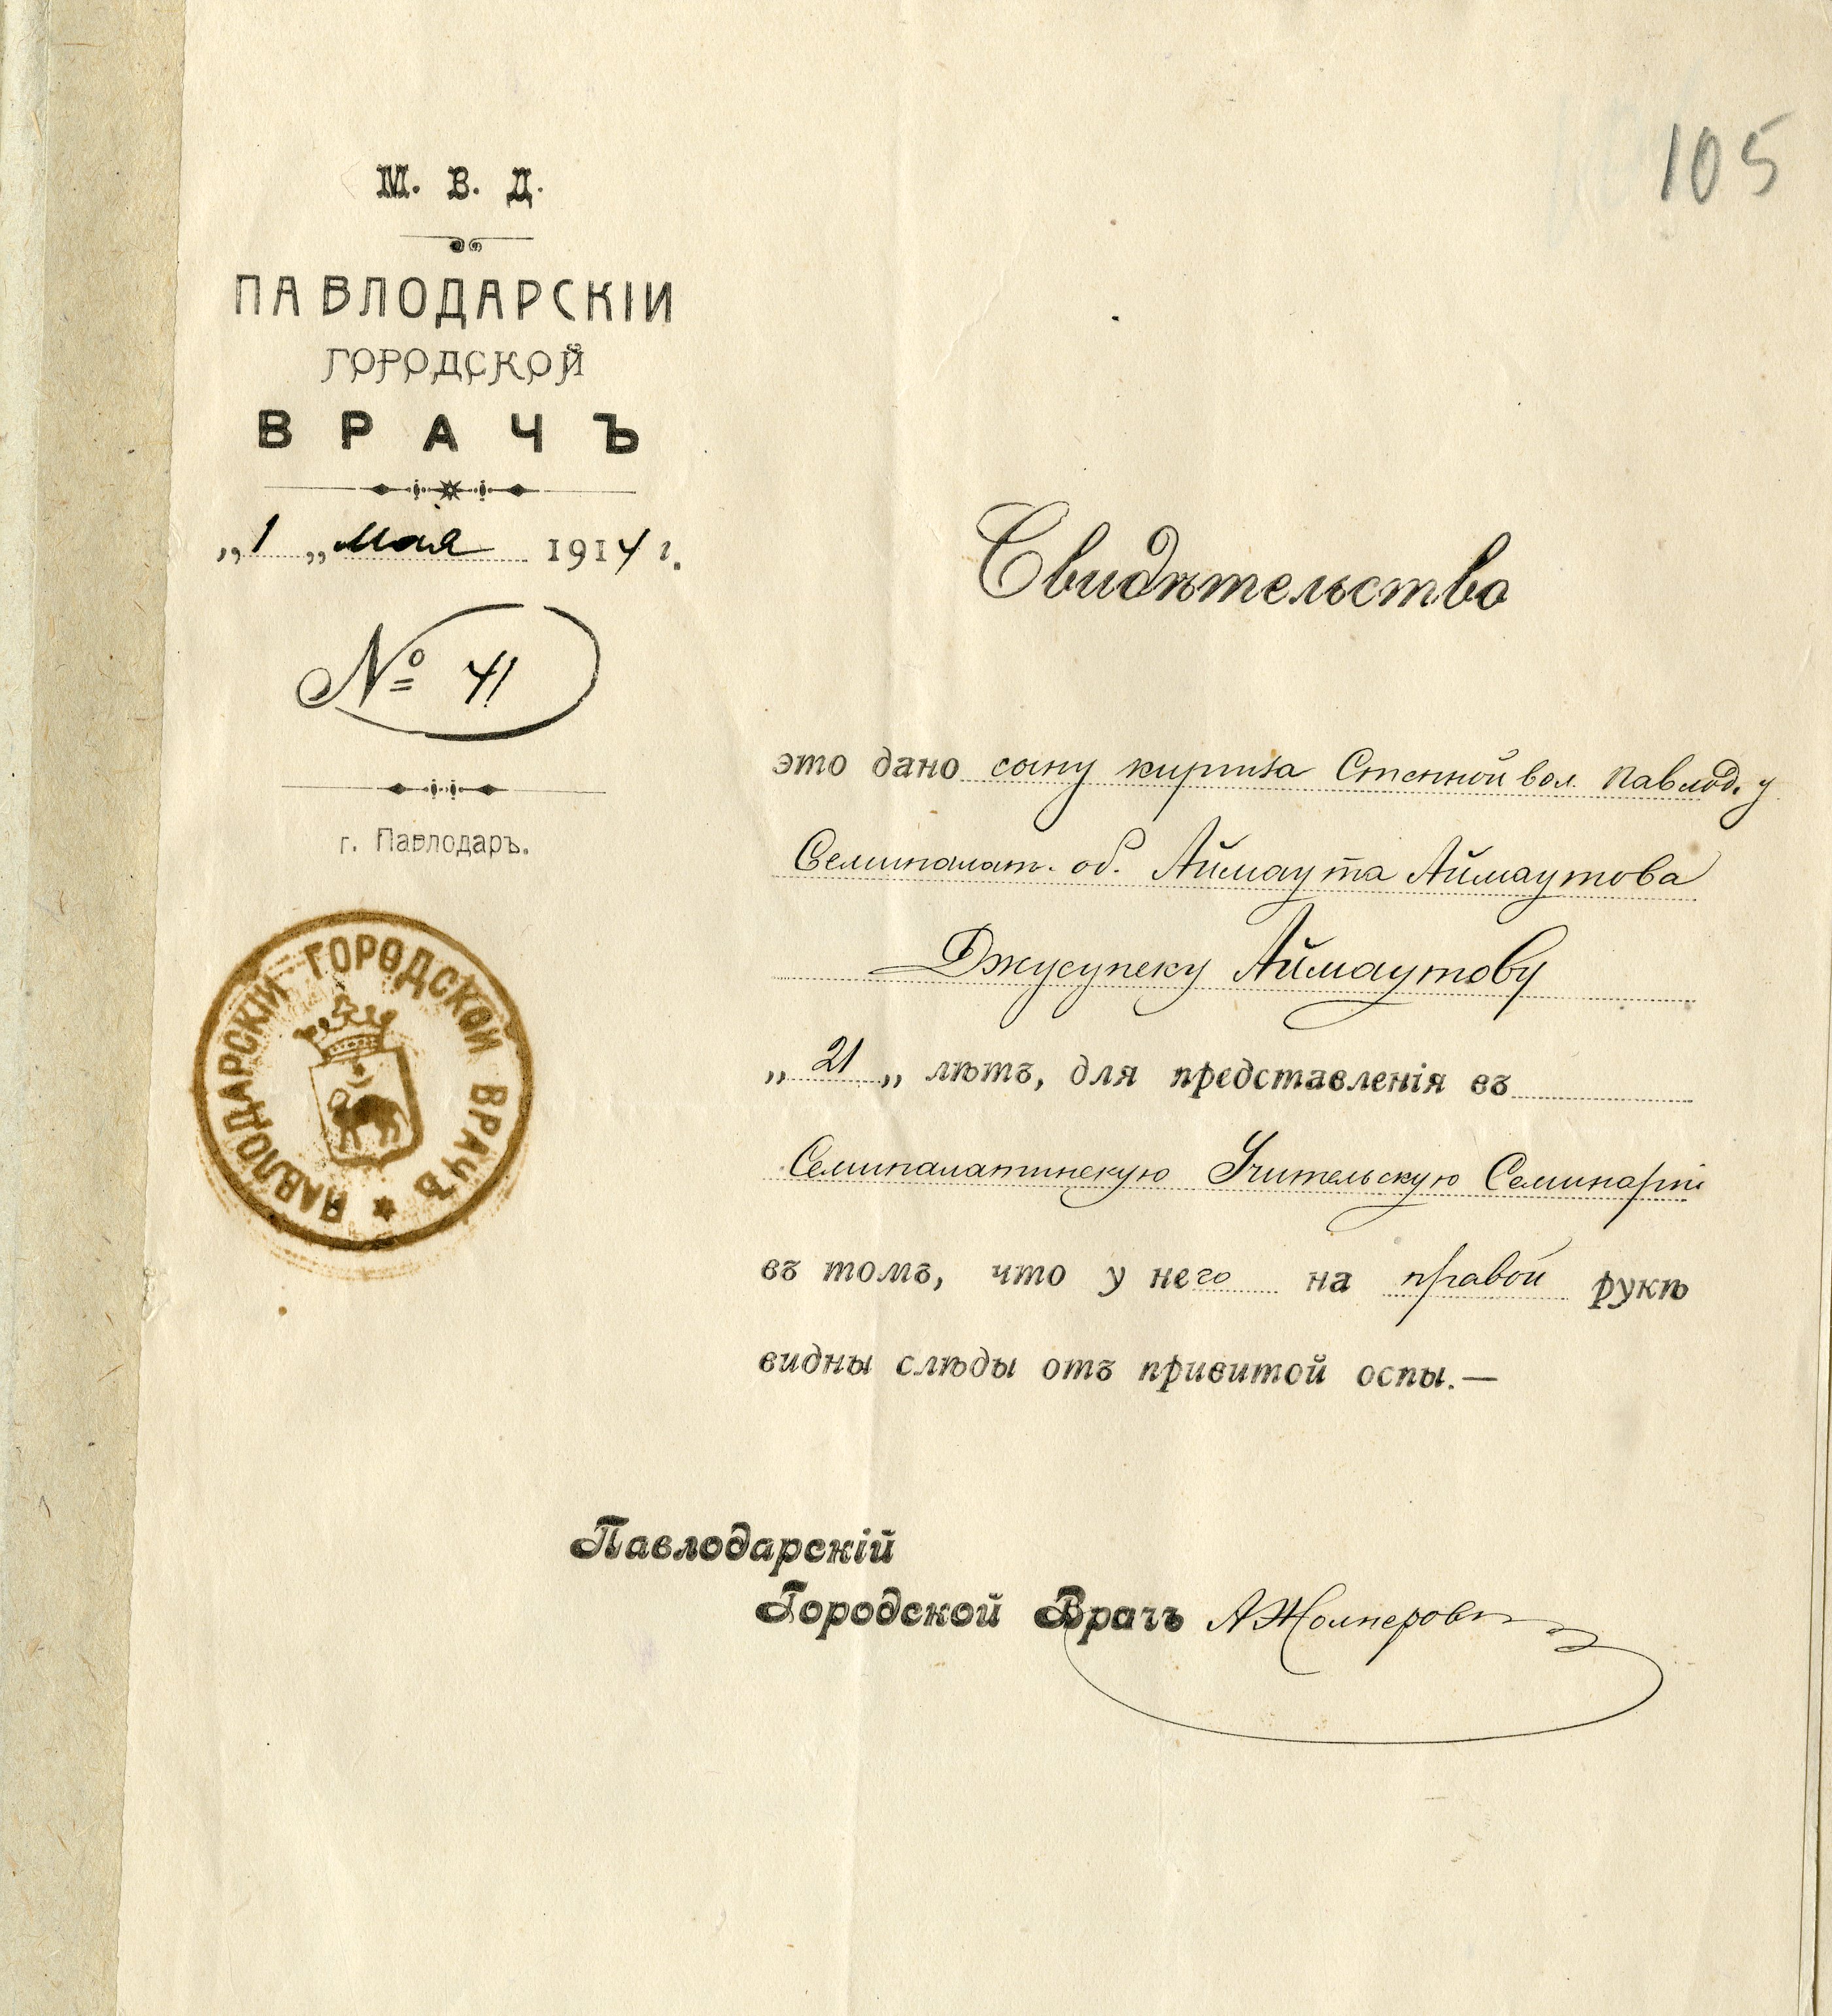 105
М. В. Д.
ПАВЛОДАРСКІИ
ГОРОДСКОЙ
ВРАЧЪ
„1„ Мая 1914 г.
№ 41
г. Павлодаръ.
ПАВЛОДАРСКІЙ ГОРОДСКОЙ ВРАЧЪ
Свидѣтельство
это дано сыну киргиза Степной вол. Павлод. у
Семипалат. об. Аймаута Аймаутова
Джусупеку Аймаутову
„21„ лѣтъ, для представленія въ
Семипалатинскую Учительскую Семинарі
въ томъ, что у него на правой рукѣ
видны слѣды отъ привитой оспы.—
Павлодарскій
Городской Врачъ